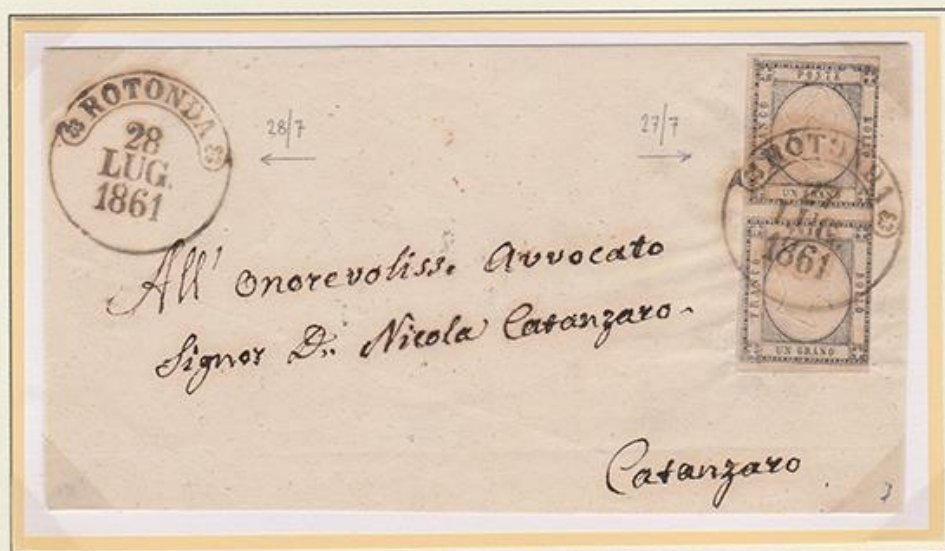 ROTONDA
28
LUG.
1861
28/7
27/7
POSTE
FRANCO
BOLLO
UN GRANO
ROTONDA
27
LUG.
1861
FRANCO
BOLLO
UN GRANO
All' Onorevoliss. Avvocato
Signor D. Nicola Catanzaro
Catanzaro